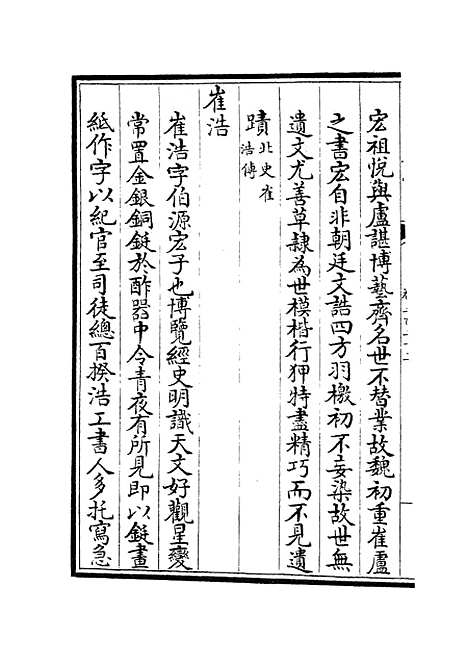 宏祖悅與盧諶博藝齊名世不替業故魏初重崔盧
之書宏自非朝廷文誥四方羽檄初不妄染故世無
遺文尤善草隸為世模楷行狎特盡精巧而不見遺
蹟北史崔
浩傳
崔浩
崔浩字伯源宏子也博覽經史明識天文好觀星變
常置金銀銅鋌於酢器中令青夜有所見即以鋌畫
紙作字以紀官至司徒總百揆浩工書人多托寫急